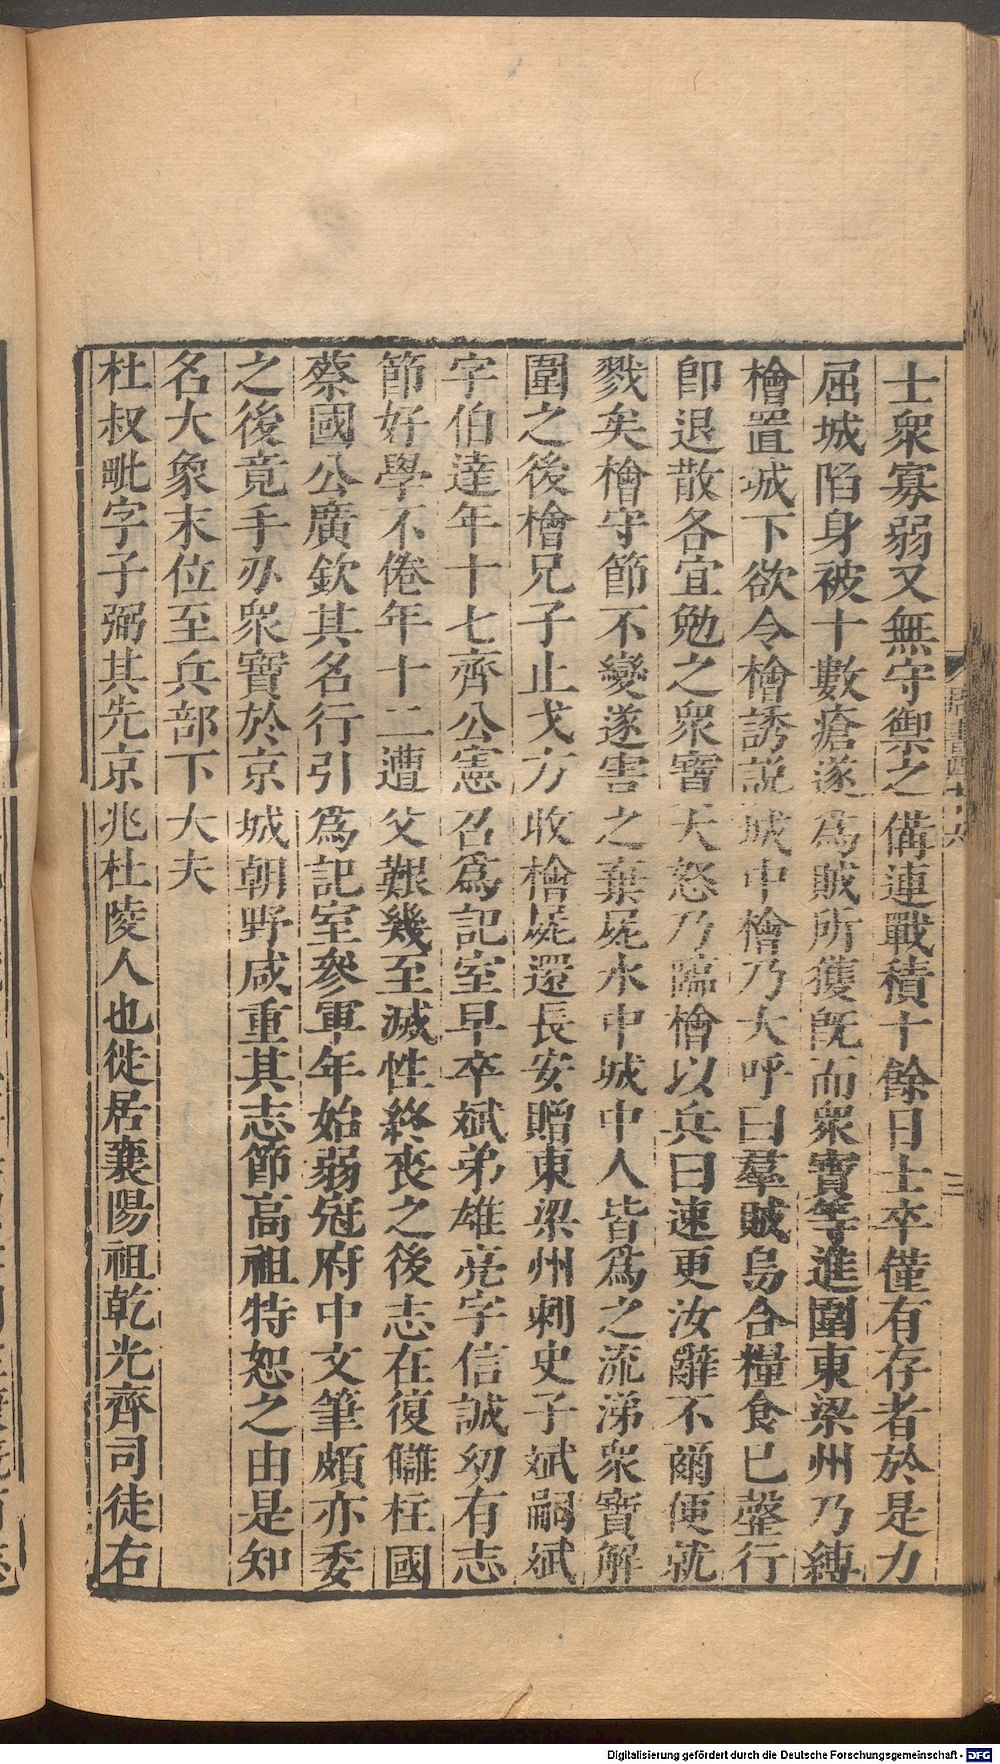 士衆寡弱又無守禦之備連戰積十餘日士卒僅有存者於是力
屈城陷身被十數瘡遂爲賊所獲旣而衆寶等進圍東梁州乃縛
檜置城下欲令檜誘説城中檜乃大呼曰羣賊烏合糧食已罄行
卽退散各宜勉之衆寶大怒乃臨檜以兵曰速更汝辭不爾便就
戮矣檜守節不變遂害之棄屍水中城中人皆爲之流涕衆寶解
圍之後檜兄子止戈方收檜屍還長安贈東梁州刺史子斌嗣斌
字伯達年十七齊公憲召爲記室早卒斌弟雄亮字信誠幼有志
節好學不倦年十二遭父艱幾至滅性終喪之後志在復讎柱國
蔡國公廣欽其名行引爲記室參軍年始弱冠府中文筆頗亦委
之後竟手刃衆寶於京城朝野咸重其志節高祖特恕之由是知
名大象末位至兵部下大夫
杜叔毗字子弼其先京兆杜陵人也徙居襄陽祖乾光齊司徒右
Digitalisierung gefördert durch die Deutsche Forschungsgemeinschaft - DFG